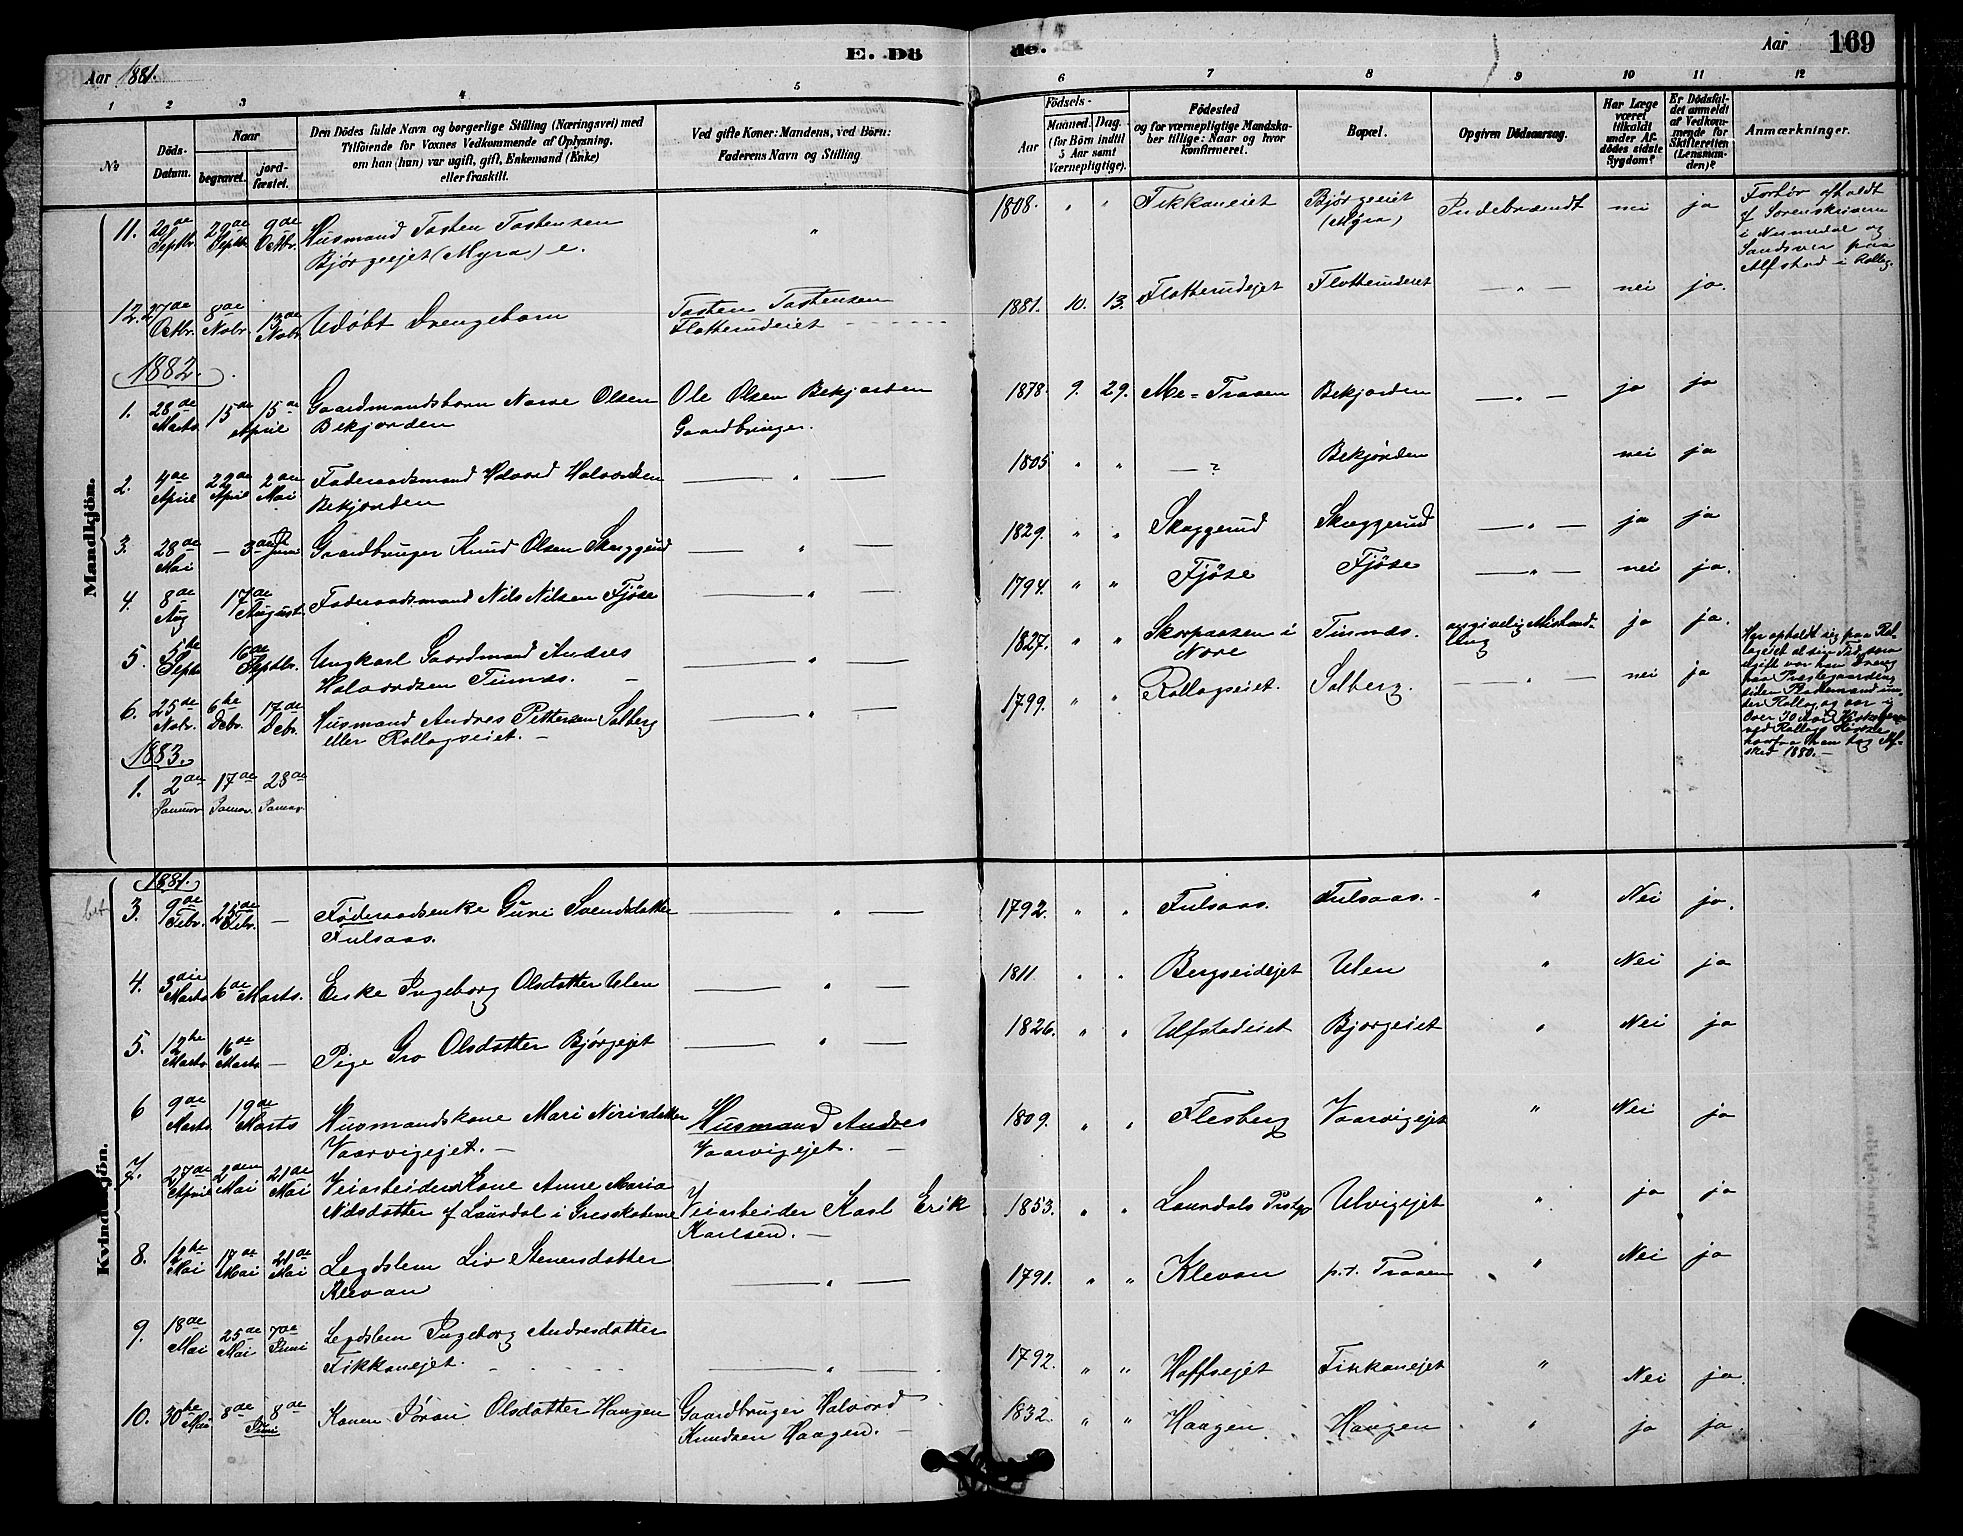 E. Dö
de.
Aar 1881.
Aar
169
1 2 3 4 5 6 7 8 9 10 11 12
No
Döds-
Datum.
Naar
begravet.
jord-
fæstet.
Den Dödes fulde Navn og borgerlige Stilling (Næringsvei) med
Tilföiende for Voxnes Vedkommende af Oplysning,
om han (hun) var ugift, gift, Enkemand (Enke)
eller fraskilt.
Ved gifte Koner: Mandens, ved Börn:
Faderens Navn og Stilling
Födsels-
Aar
Maaned. Dag.
(for Börn indtil
5 Aar samt
Værnepligtige).
Födested
og for værnepligtige Mandska-
ber tillige: Naar og hvor
konfirmeret.
Bopæl.
Opgiven Dödsaarsag.
Har Læge
været
tilkaldt
under Af-
dödes sidste
Sygdom?
Er Dödsfal-
det anmeldt
af Vedkom-
mende for
Skifteretten
(Lensman-
den)?
Anmærkninger.
Mandkjön.
11. 20de Septbr. 29de Septb. 9de Octbr. Husmand Tosten Tostensen
Bjørgeejet (Myra) e. " 1808. " " Fikkaneiet Bjørgeeiet
(Myra) nei ja
Forhør afholdt
af Sorenskriveren
i Numedal og
Sandsver paa
Alfstad i Rollag.
12. 27de Octbr. 8de Nobr. 13de Nobr. Udøbt Drengebarn Tosten Tostensen
Flotterudeiet 1881. 10. 13. Flotterudejet Flotterudeiet — " — nei ja.
1882.
1. 28de Marts 15de 15de April Gaardmandsbarn Narve Olsen
Bekjorden Ole Olsen Bekjorden
Gaardbruger. 1878. 9. 29. Me=Traaen Bekjorden — " — ja ja
2. 4de April 22de April 2den Mai Føderaadsmand Halvord Halvordsen
Bekjorden — " — 1805 " " — ? Bekjorden nei ja
3. 28de Mai — 3die Juni Gaardbruger Knud Olsen Skeggerud — " — 1829. " " Skeggerud Skeggerud — " — ja ja
4. 8de Aug 17de August. Føderaadsmand Nils Nilsen Fjøse — " — 1794. " " Fjøse Fjøse — " — nei ja.
5. 5te Septb. 16de Septbr. Ungkarl Gaardmand Andres
Halvordsen Tinnæs. — " — 1827. " " Skorpaasen i
Nore Tinnæs. angivelig Mishand-
ling ja ja.
6. 25de Nobr. 6te Debr. 17de Debr. Husmand Andres Pettersen Solberg
eller Rollagseiet. — " — 1799. " " Rollagseiet. Solberg. — " — nei ja
Har opholdt sig paa Rol-
lageiet al sin Tid, som
ugift var han Dreng
paa Præstegaarden,
siden Pladsmand un-
der Rollag, og var i
over 30 Aar
ved Rollags Kirke,
hvorfra han tog Af-
sked 1880.—
1883.
1. 2den Januar 17de Januar. 28de Januar.
Kvindekjön.
1881.
3. 9de Febr. 25de Febr. — Føderaadsenke Guri Svendsdatter
Fulsaas. — " — 1792. " " Fulsaas. Fulsaas. " Nei ja.
4. 3die Marts 16de Marts. Enke Ingeborg Olsdatter Ulen — " — 1811. " " Bergseidejet Ulen " Nei ja
5. 12te Marts 16de Marts — Pige Gro Olsdatter Bjørgejet — " — 1826. " " Alfstadeiet Bjorgeiet " Nei ja
6 9de Marts 19de Marts Husmandskone Mari Nirisdatter
Vaarvigejet.— Husmand Andres
Vaarvigejet.— 1809. " " Flesberg Vaarvigejet " Nei ja
7. 27de April 2den Mai 21de Mai Veiarbeiders Kone Anne Maria
Nilsdatter af Laurdal i Gresskaterne Veiarbeider Karl Erik
Karlsen.— 1853. " " Laurdals Prstgj Ulvigejet " ja ja
8. 12te Mai 17de Mai 21de Mai Legdslem Liv Stenersdatter
Klevan — " — 1791. " " Klevan p.t. Traaen " Nei ja
9. 18de Mai 25de Mai 7de Juni Legdslem Ingeborg Andresdatter
Fikkanejet. — " — 1792. " " Hoffsejet Fikkanejet " Nei ja.
10. 30te Mai 8de 8de Juni Konen Jøran Olsdatter Haugen Gaardbruger Halvord
Knudsen Haagen.— 1832. " " Haagen Haagen " ja ja.